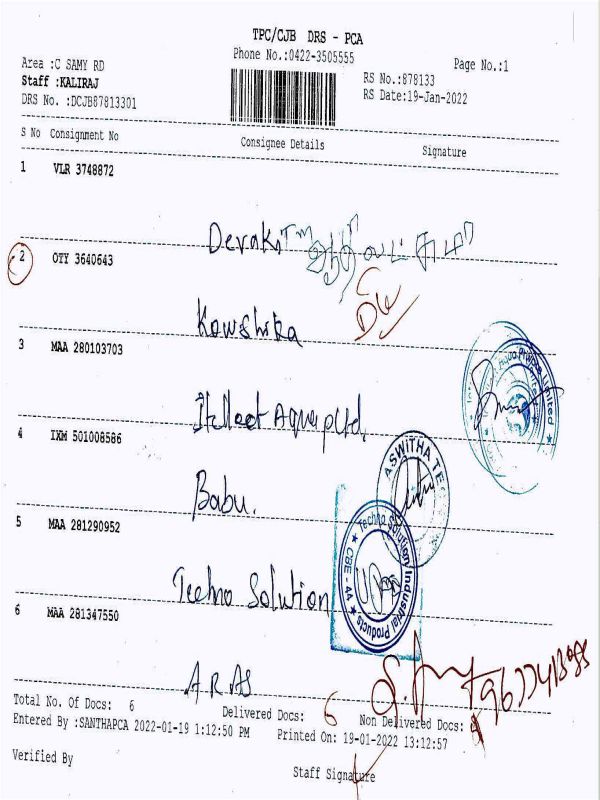 TPC/CJB DRS - PCA
Phone No.:0422-3505555
Page No.:1
Area :C SAMY RD
Staff :KALIRAJ
DRS No. :DCJB87813301
RS No.:878133
RS Date:19-Jan-2022
S No Consignment No Consignee Details Signature
1 VLR 3748872
Devaki
2 OTY 3640643
Kowshika
3 MAA 280103703
Aqua p Ltd.
4 IXM 501008586
ASWITHA TE
Babu.
5 MAA 281290952
Techno Solution Industrial Products
CBE - 44
Techno Solution
6 MAA 281347550
ARAS
Total No. Of Docs: 6 Delivered Docs: 6 Non Delivered Docs:
Entered By :SANTHAPCA 2022-01-19 1:12:50 PM Printed On: 19-01-2022 13:12:57
Verified By
Staff Signature